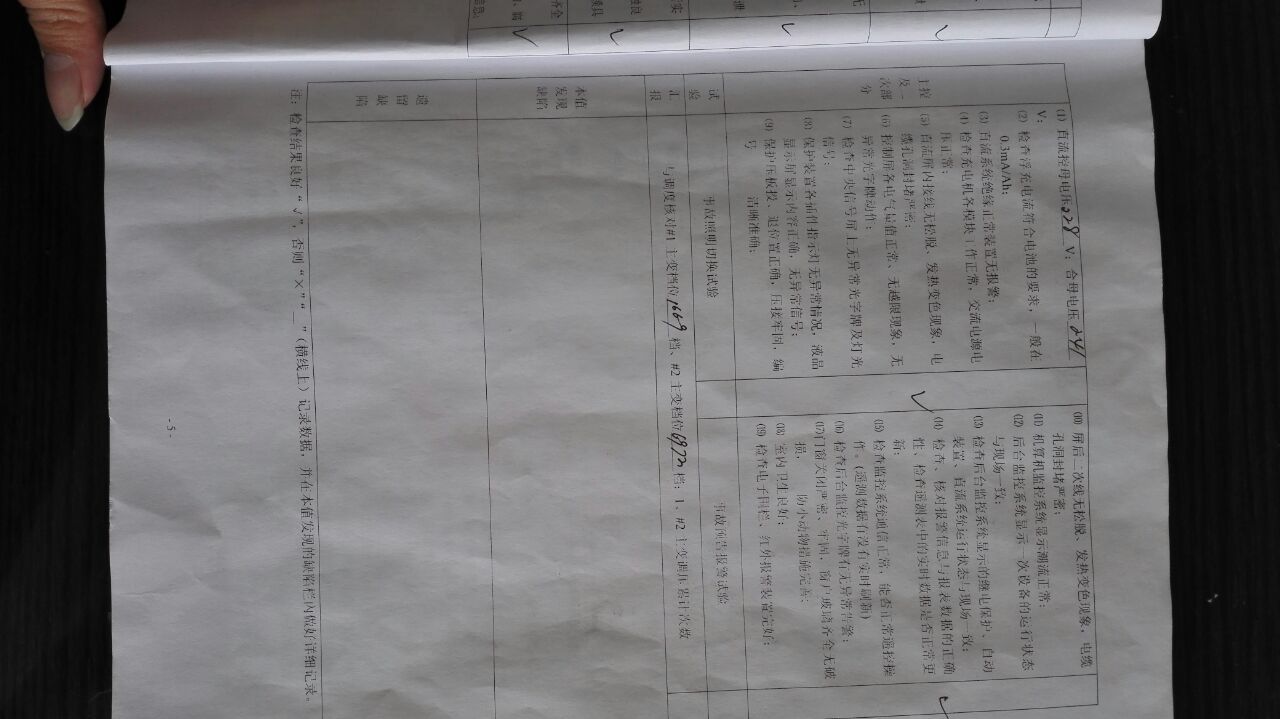 主控及二次部分
(1) 直流控母电压228 V；合母电压241
V；
(2) 检查浮充电流符合电池的要求，一般在
0.3mA/Ah；
(3) 直流系统绝缘正常装置无报警；
(4) 检查充电机各模块工作正常，交流电源电
压正常；
(5) 直流屏内接线无松脱、发热变色现象，电
缆孔洞封堵严密；
(6) 控制屏各电气量值正常、无越限现象，无
异常光字牌动作；
(7) 检查中央信号屏上无异常光字牌及灯光
信号；
(8) 保护装置各插件指示灯无异常情况，液晶
显示屏显示内容正确，无异常信号；
(9) 保护压板投、退位置正确，压接牢固，编号
清晰准确；
√
(10) 屏后二次线无松脱、发热变色现象，电缆
孔洞封堵严密；
(11) 机算机监控系统显示潮流正常；
(12) 后台监控系统显示一次设备的运行状态
与现场一致；
(13) 检查后台监控系统显示的继电保护、自动
装置、直流系统运行状态与现场一致；
(14) 检查、核对报警信息与报表数据的正确
性、检查遥测表中的实时数据是否正常更
新；
(15) 检查监控系统通信正常，能否正常遥控操
作。(遥测数据有没有实时刷新)
(16) 检查后台监控光字牌有无异常告警；
(17) 门窗关闭严密、牢固，窗户玻璃齐全无破
损， 防小动物措施完善；
(18) 室内卫生良好；
(19) 检查电子围栏、红外报警装置完好；
√
试验
事故照明切换试验
事故预告报警试验
汇报
与调度核对#1 主变档位1669 档、#2 主变档位6972 档；1、#2 主变调压累计次数
本值发现缺陷
遗留缺陷
注：检查结果良好“√”，否则“×”“＿”(横线上）记录数据，并在本值发现的缺陷栏内做好详细记录。
-5-